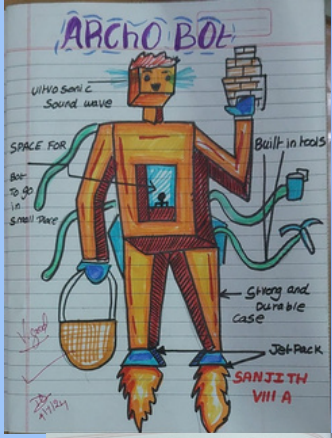 ARCHO BOt
Ultrasonic
Sound wave
SPACE FOR
Bot
To go
in
Small Place
Built in tools
Strong and
Durable
Case
Jet Pack
SANJITH
VIII A